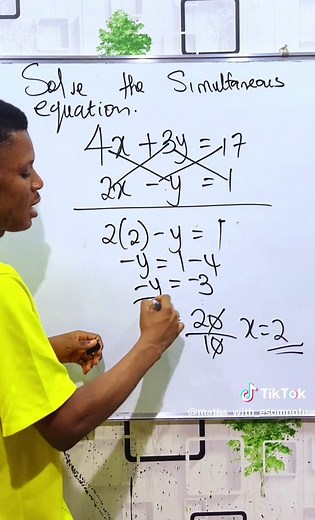 Solve the Simultaneous
equation.
4x + 3y = 17
2x - y = 1
2(2) - y = 1
-y = 1 - 4
-y = -3
20/10 x = 2
TikTok